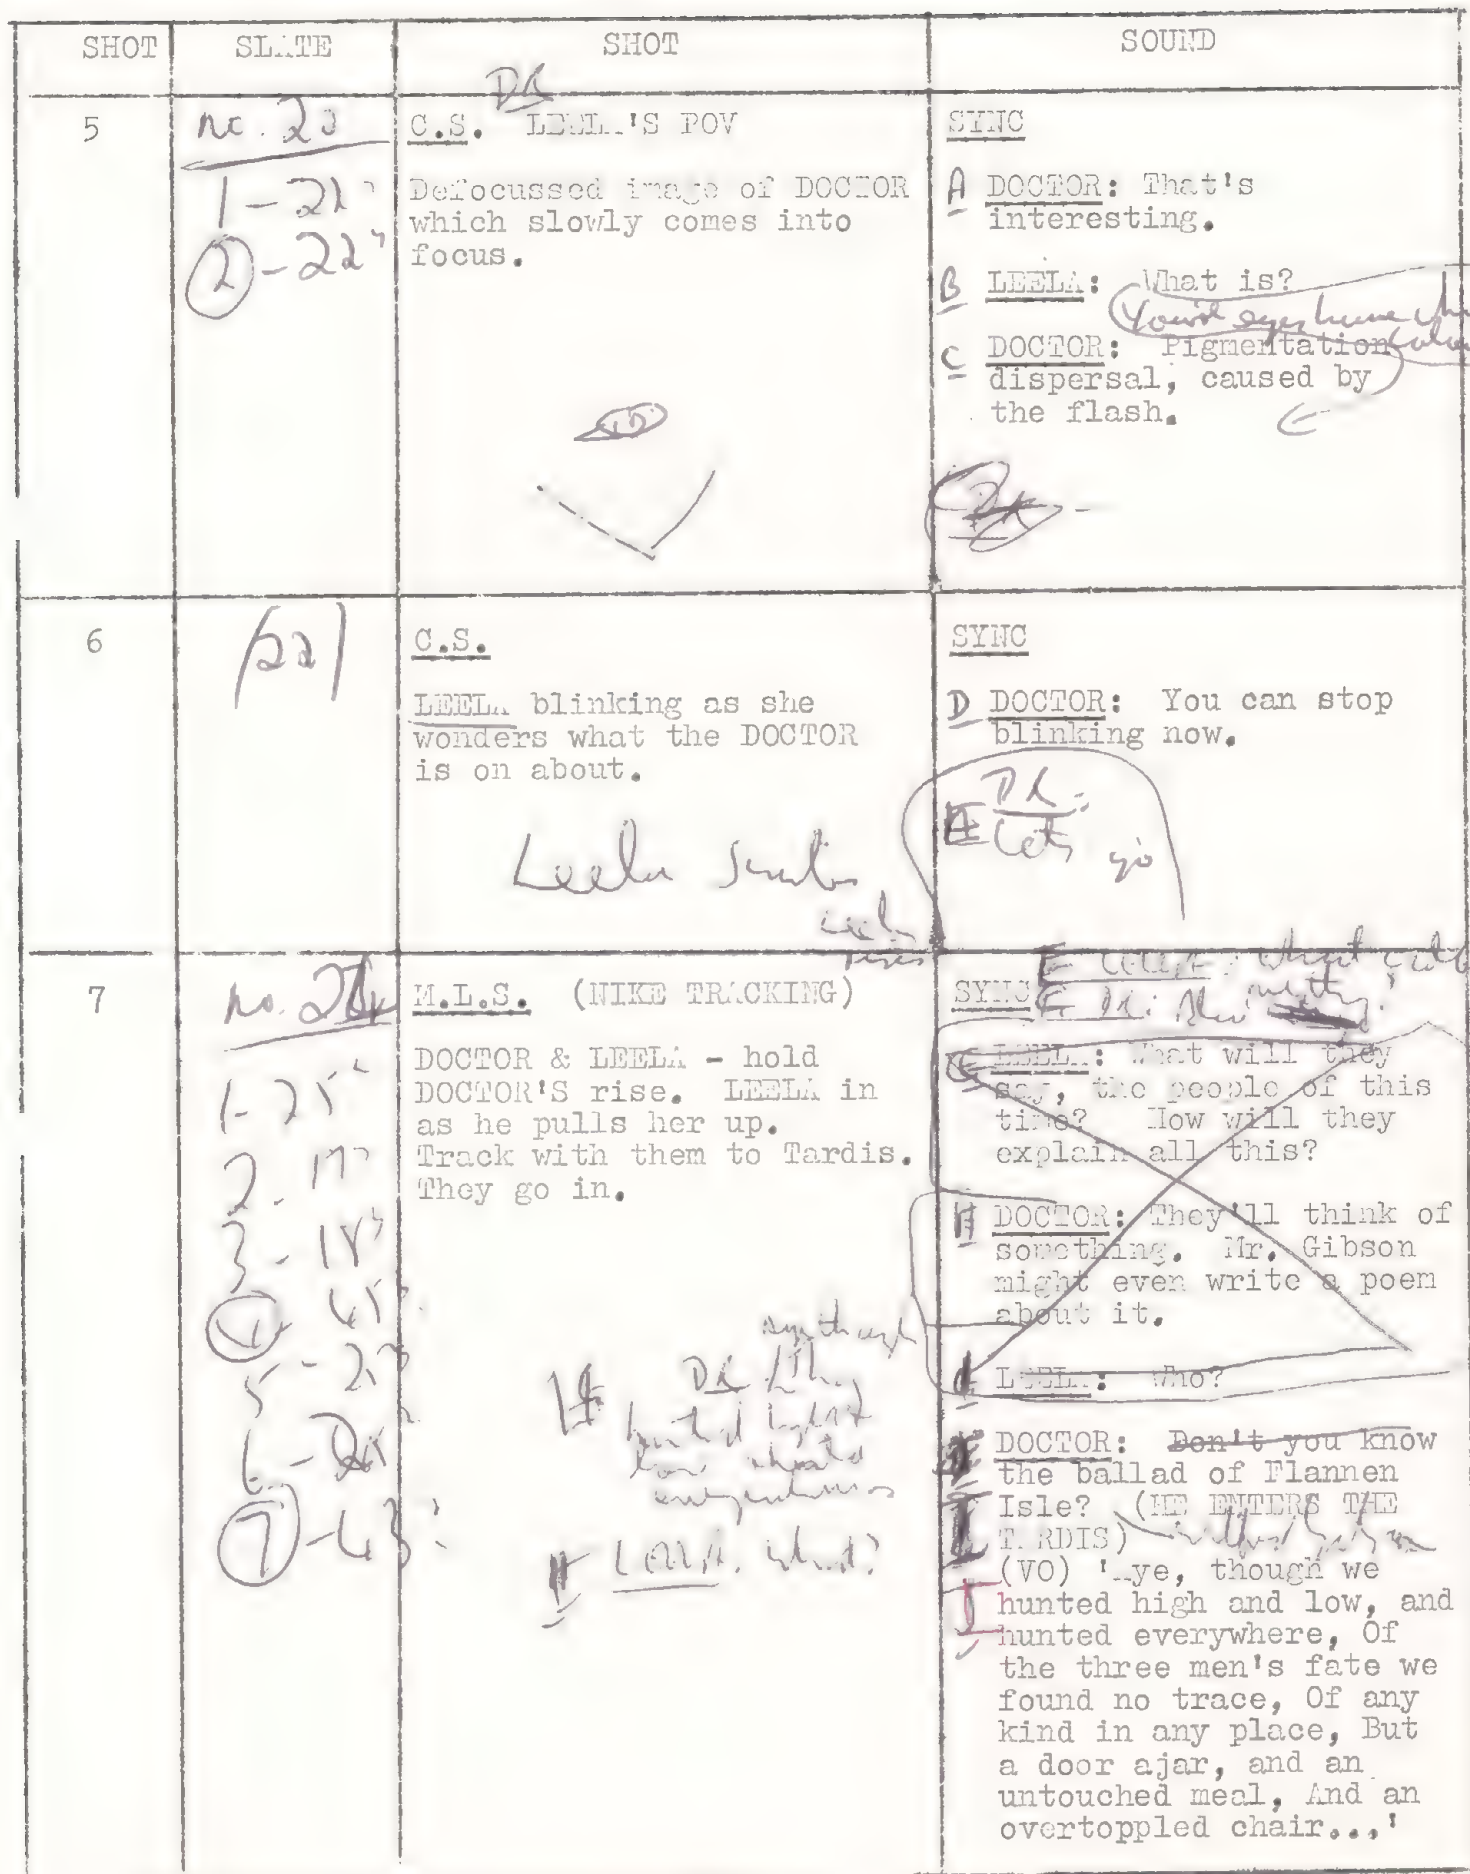 SHOT SLATE SHOT SOUND
DR
5
no. 23
1-21"
2-22"
C.S. LEELA'S POV
Defocussed image of DOCTOR
which slowly comes into
focus.
SYNC
A DOCTOR: That's
interesting.
B LEELA: What is?
Your eyes have
C DOCTOR: Pigmentation
dispersal, caused by
the flash.
6
22
C.S.
LEELA blinking as she
wonders what the DOCTOR
is on about.
Leela smiles
Leela
rises
SYNC
D DOCTOR: You can stop
blinking now.
DR:
Lets go
7
no.
1-25"
2-17"
3-18"
5-23"
6-
7-43"
M.L.S. (NIKE TRACKING)
DOCTOR & LEELA - hold
DOCTOR'S rise. LEELA in
as he pulls her up.
Track with them to Tardis.
They go in.
DR
LEELA. What?
LEELA: What
SYNC
LEELA: What will they
say, the people of this
time? How will they
explain all this?
H DOCTOR: They'll think of
something. Mr. Gibson
might even write a poem
about it.
LEELA: Who?
DOCTOR: Don't you know
the ballad of Flannen
Isle? (HE ENTERS THE
TARDIS)
(VO) 'Aye, though we
hunted high and low, and
hunted everywhere, Of
the three men's fate we
found no trace, Of any
kind in any place, But
a door ajar, and an
untouched meal, And an
overtoppled chair...'